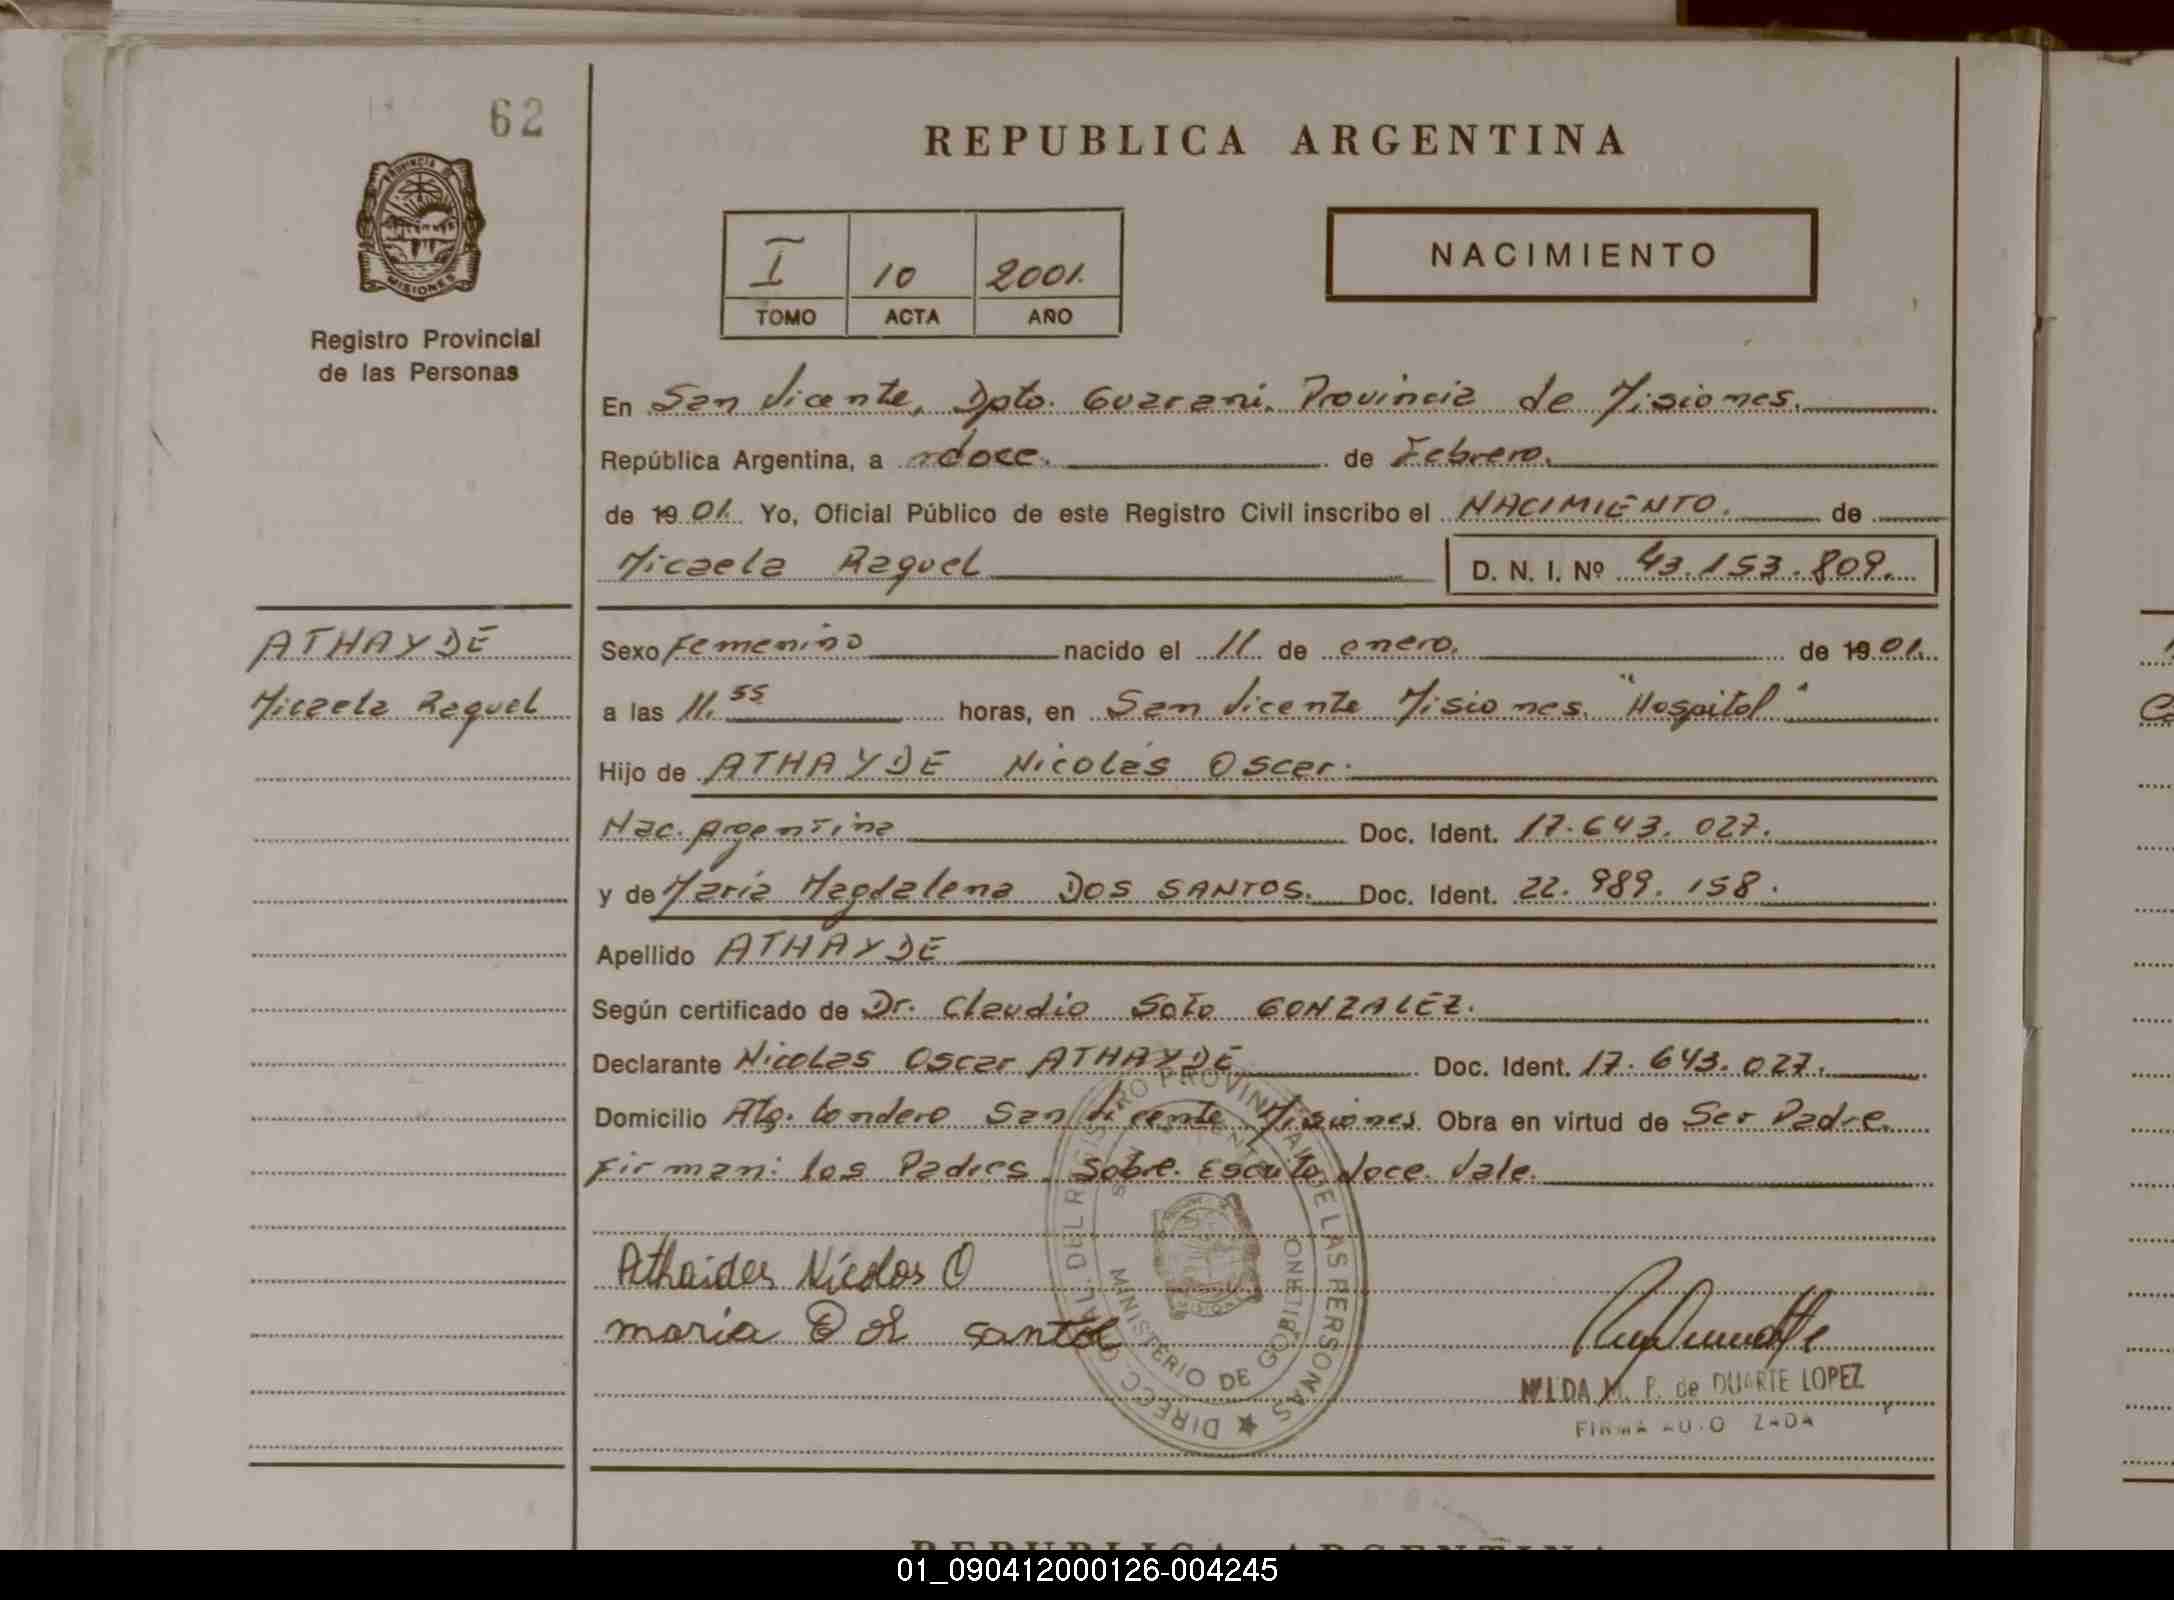 62
REPUBLICA ARGENTINA
PROVINCIA DE MISIONES
Registro Provincial
de las Personas
I 10 2001.
TOMO ACTA AÑO
NACIMIENTO
En San Vicente, Dpto. Guaraní. Provincia de Misiones.
República Argentina, a doce. de Febrero.
de 19 01. Yo, Oficial Público de este Registro Civil inscribo el NACIMIENTO. de
Micaela Raquel D. N. I. Nº 43.153.809.
ATHAYDE
Micaela Raquel
Sexo Femenino nacido el 11 de enero. de 19 01.
a las 11.55 horas, en San Vicente Misiones. "Hospital"
Hijo de ATHAYDE Nicolás Oscar.
Nac. Argentina Doc. Ident. 17.643.027.
y de María Magdalena DOS SANTOS. Doc. Ident. 22.989.158.
Apellido ATHAYDE
Según certificado de Dr. Claudio Soto GONZALEZ.
Declarante Nicolas Oscar ATHAYDE Doc. Ident. 17.643.027.
Domicilio Alg. Londero San Vicente Misiones. Obra en virtud de Ser Padre.
Firman: los Padres. Sobre Escrito doce. Vale.
Athaides Nicolas O
maria D santos
DIRECC. GRAL. DEL REGISTRO PROVINCIAL DE LAS PERSONAS
MINISTERIO DE GOBIERNO
NILDA M. P. de DUARTE LOPEZ
FIRMA AUTORIZADA
REPUBLICA ARGENTINA
01_090412000126-004245